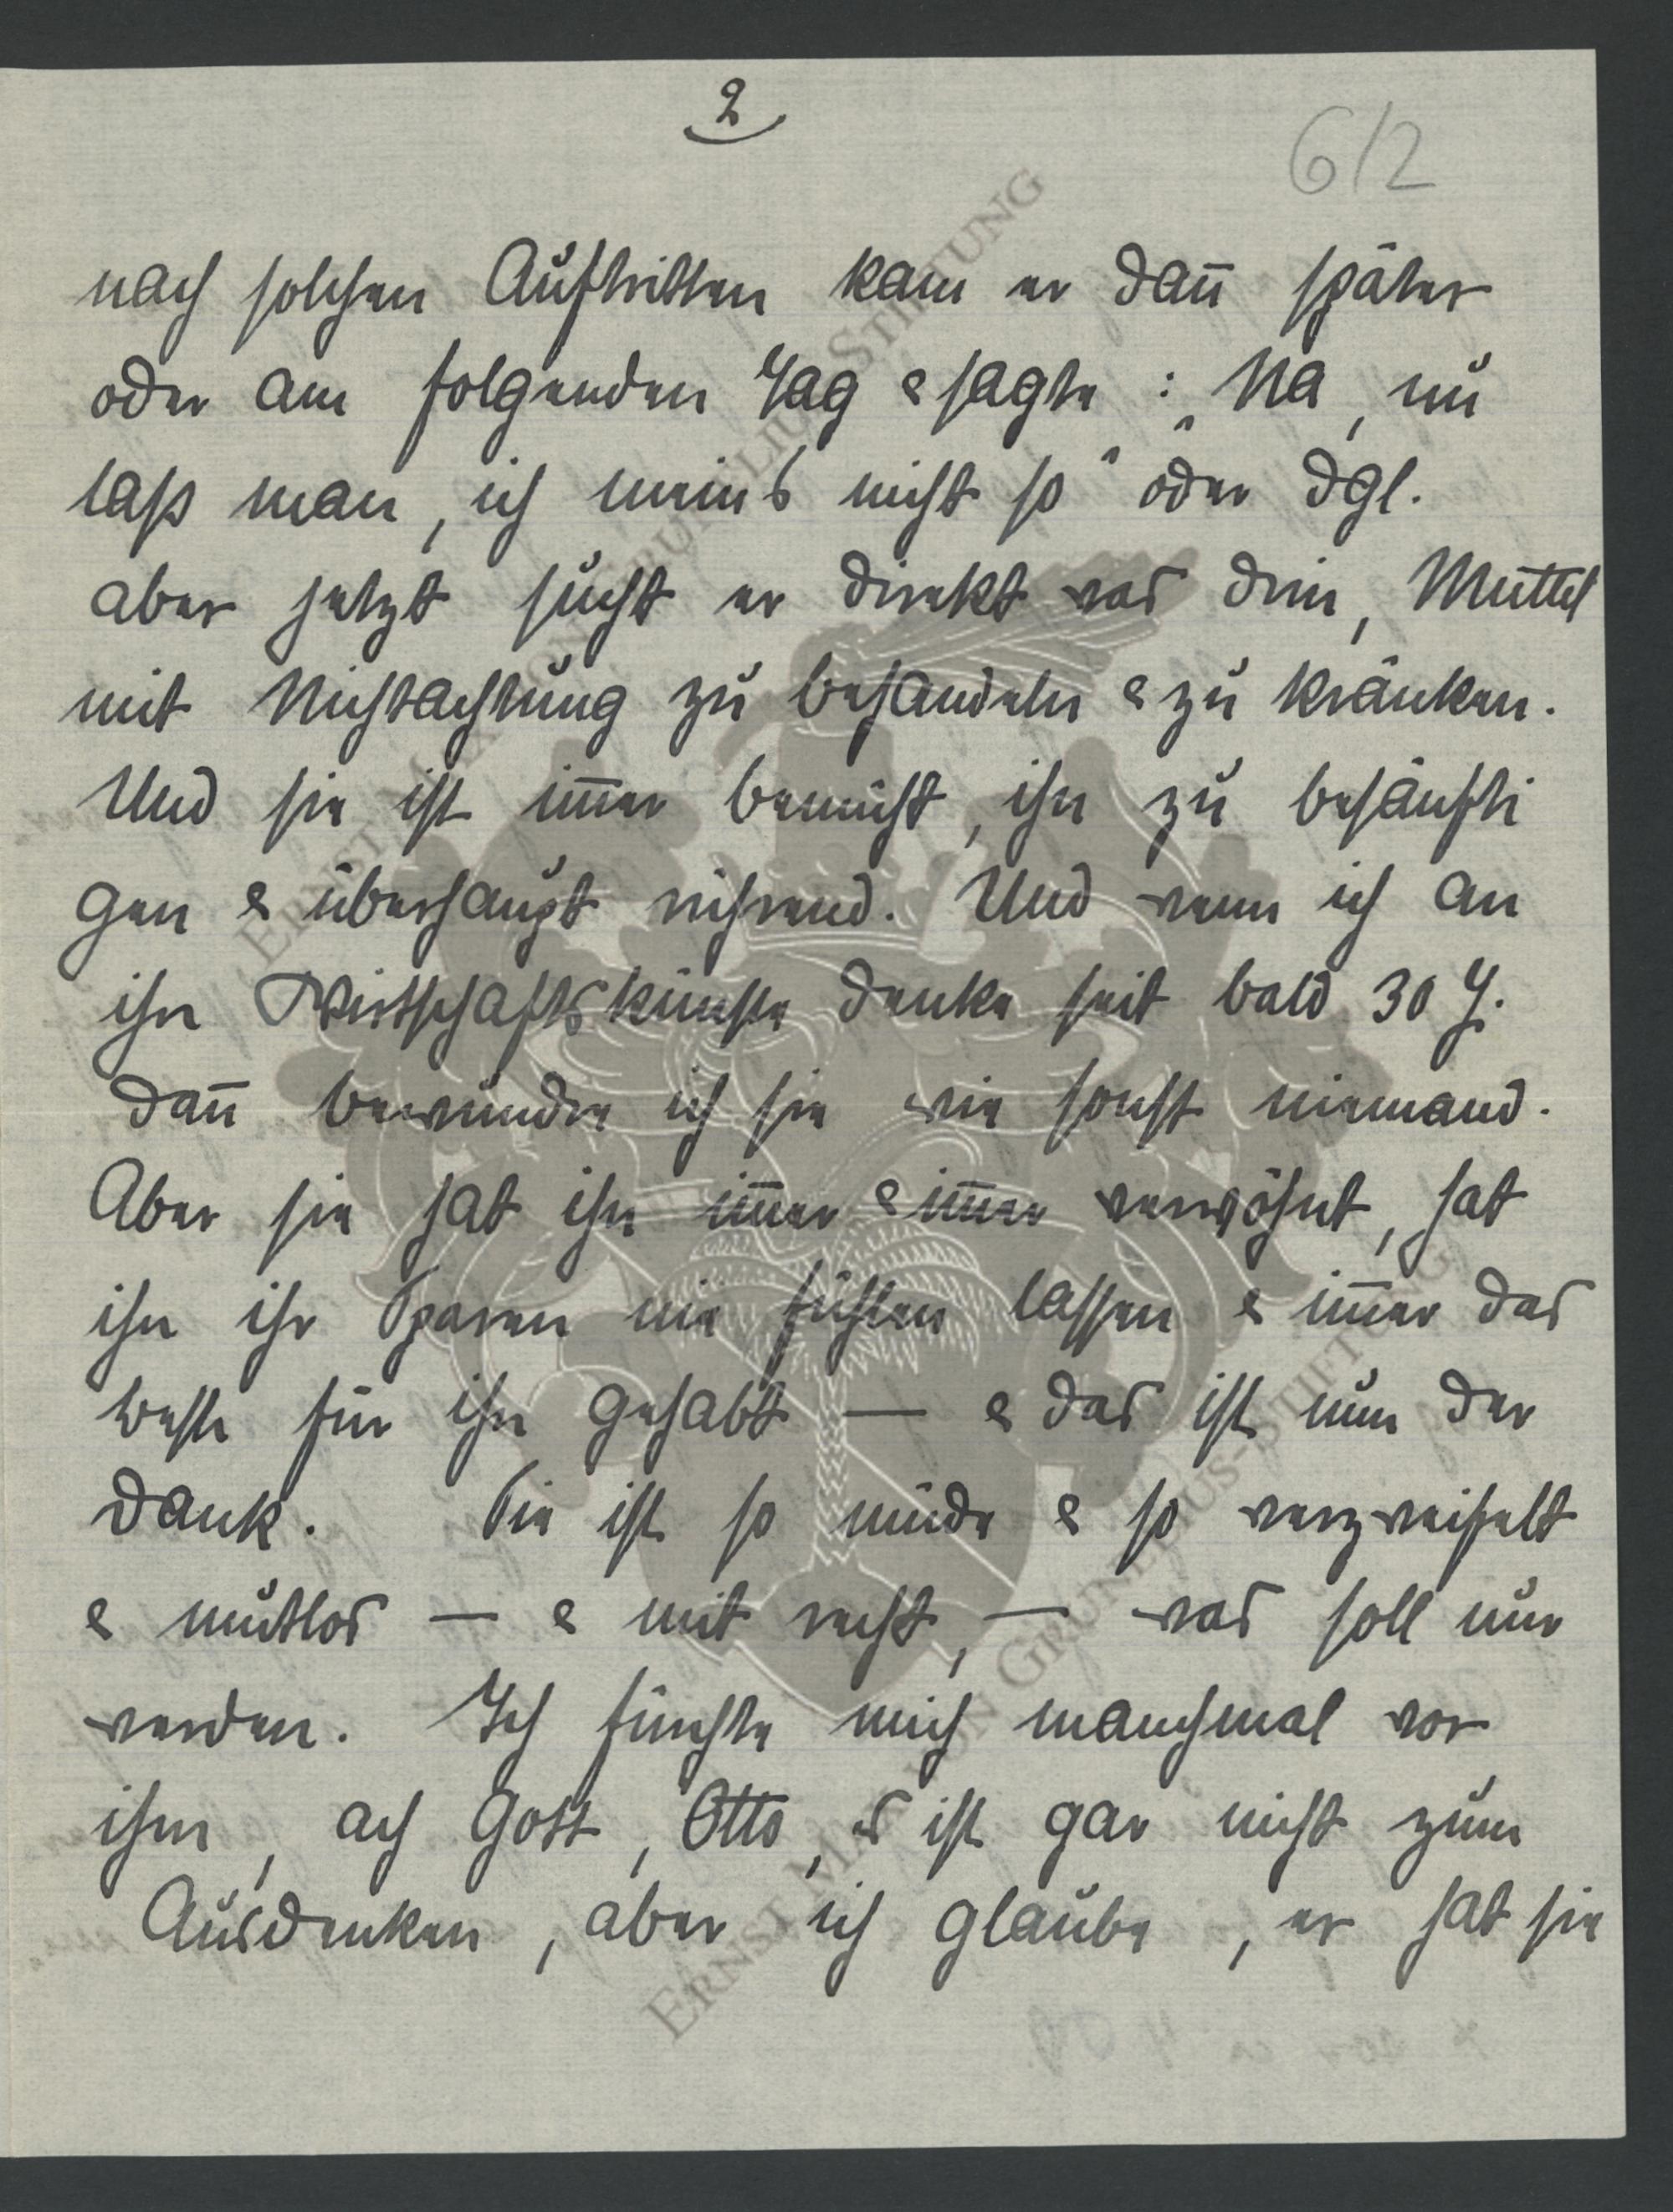 2
6/2
nach solchen Auftritten kam er dan̄ später
oder am folgenden Tag & sagte: „Na, nu
lass man, ich meins nicht so“ oder dgl.
aber jetzt sucht er direkt was drin, Muttel
mit Nichtachtung zu behandeln & zu kränken.
Und sie ist im̄er bemüht, ihn zu besänfti
gen & überhaupt rührend. Und wenn ich an
ihre Wirtschaftskünste denke seit bald 30 J.
dan̄ bewundre ich sie wie sonst niemand.
Aber sie hat ihn im̄er & im̄er verwöhnt, hat
ihn ihr Sparen nie fühlen lassen & im̄er das
beste für ihn gehabt — & das ist nun der
Dank. Sie ist so müde & so verzweifelt
& mutlos — & mit recht, — was soll nur
werden. Ich fürchte mich manchmal vor
ihm, ach Gott, Otto, es ist gar nicht zum
Ausdenken, aber ich glaube, er hat sie
ERNST MAX VON GRUNELIUS-STIFTUNG
ERNST MAX VON GRUNELIUS-STIFTUNG